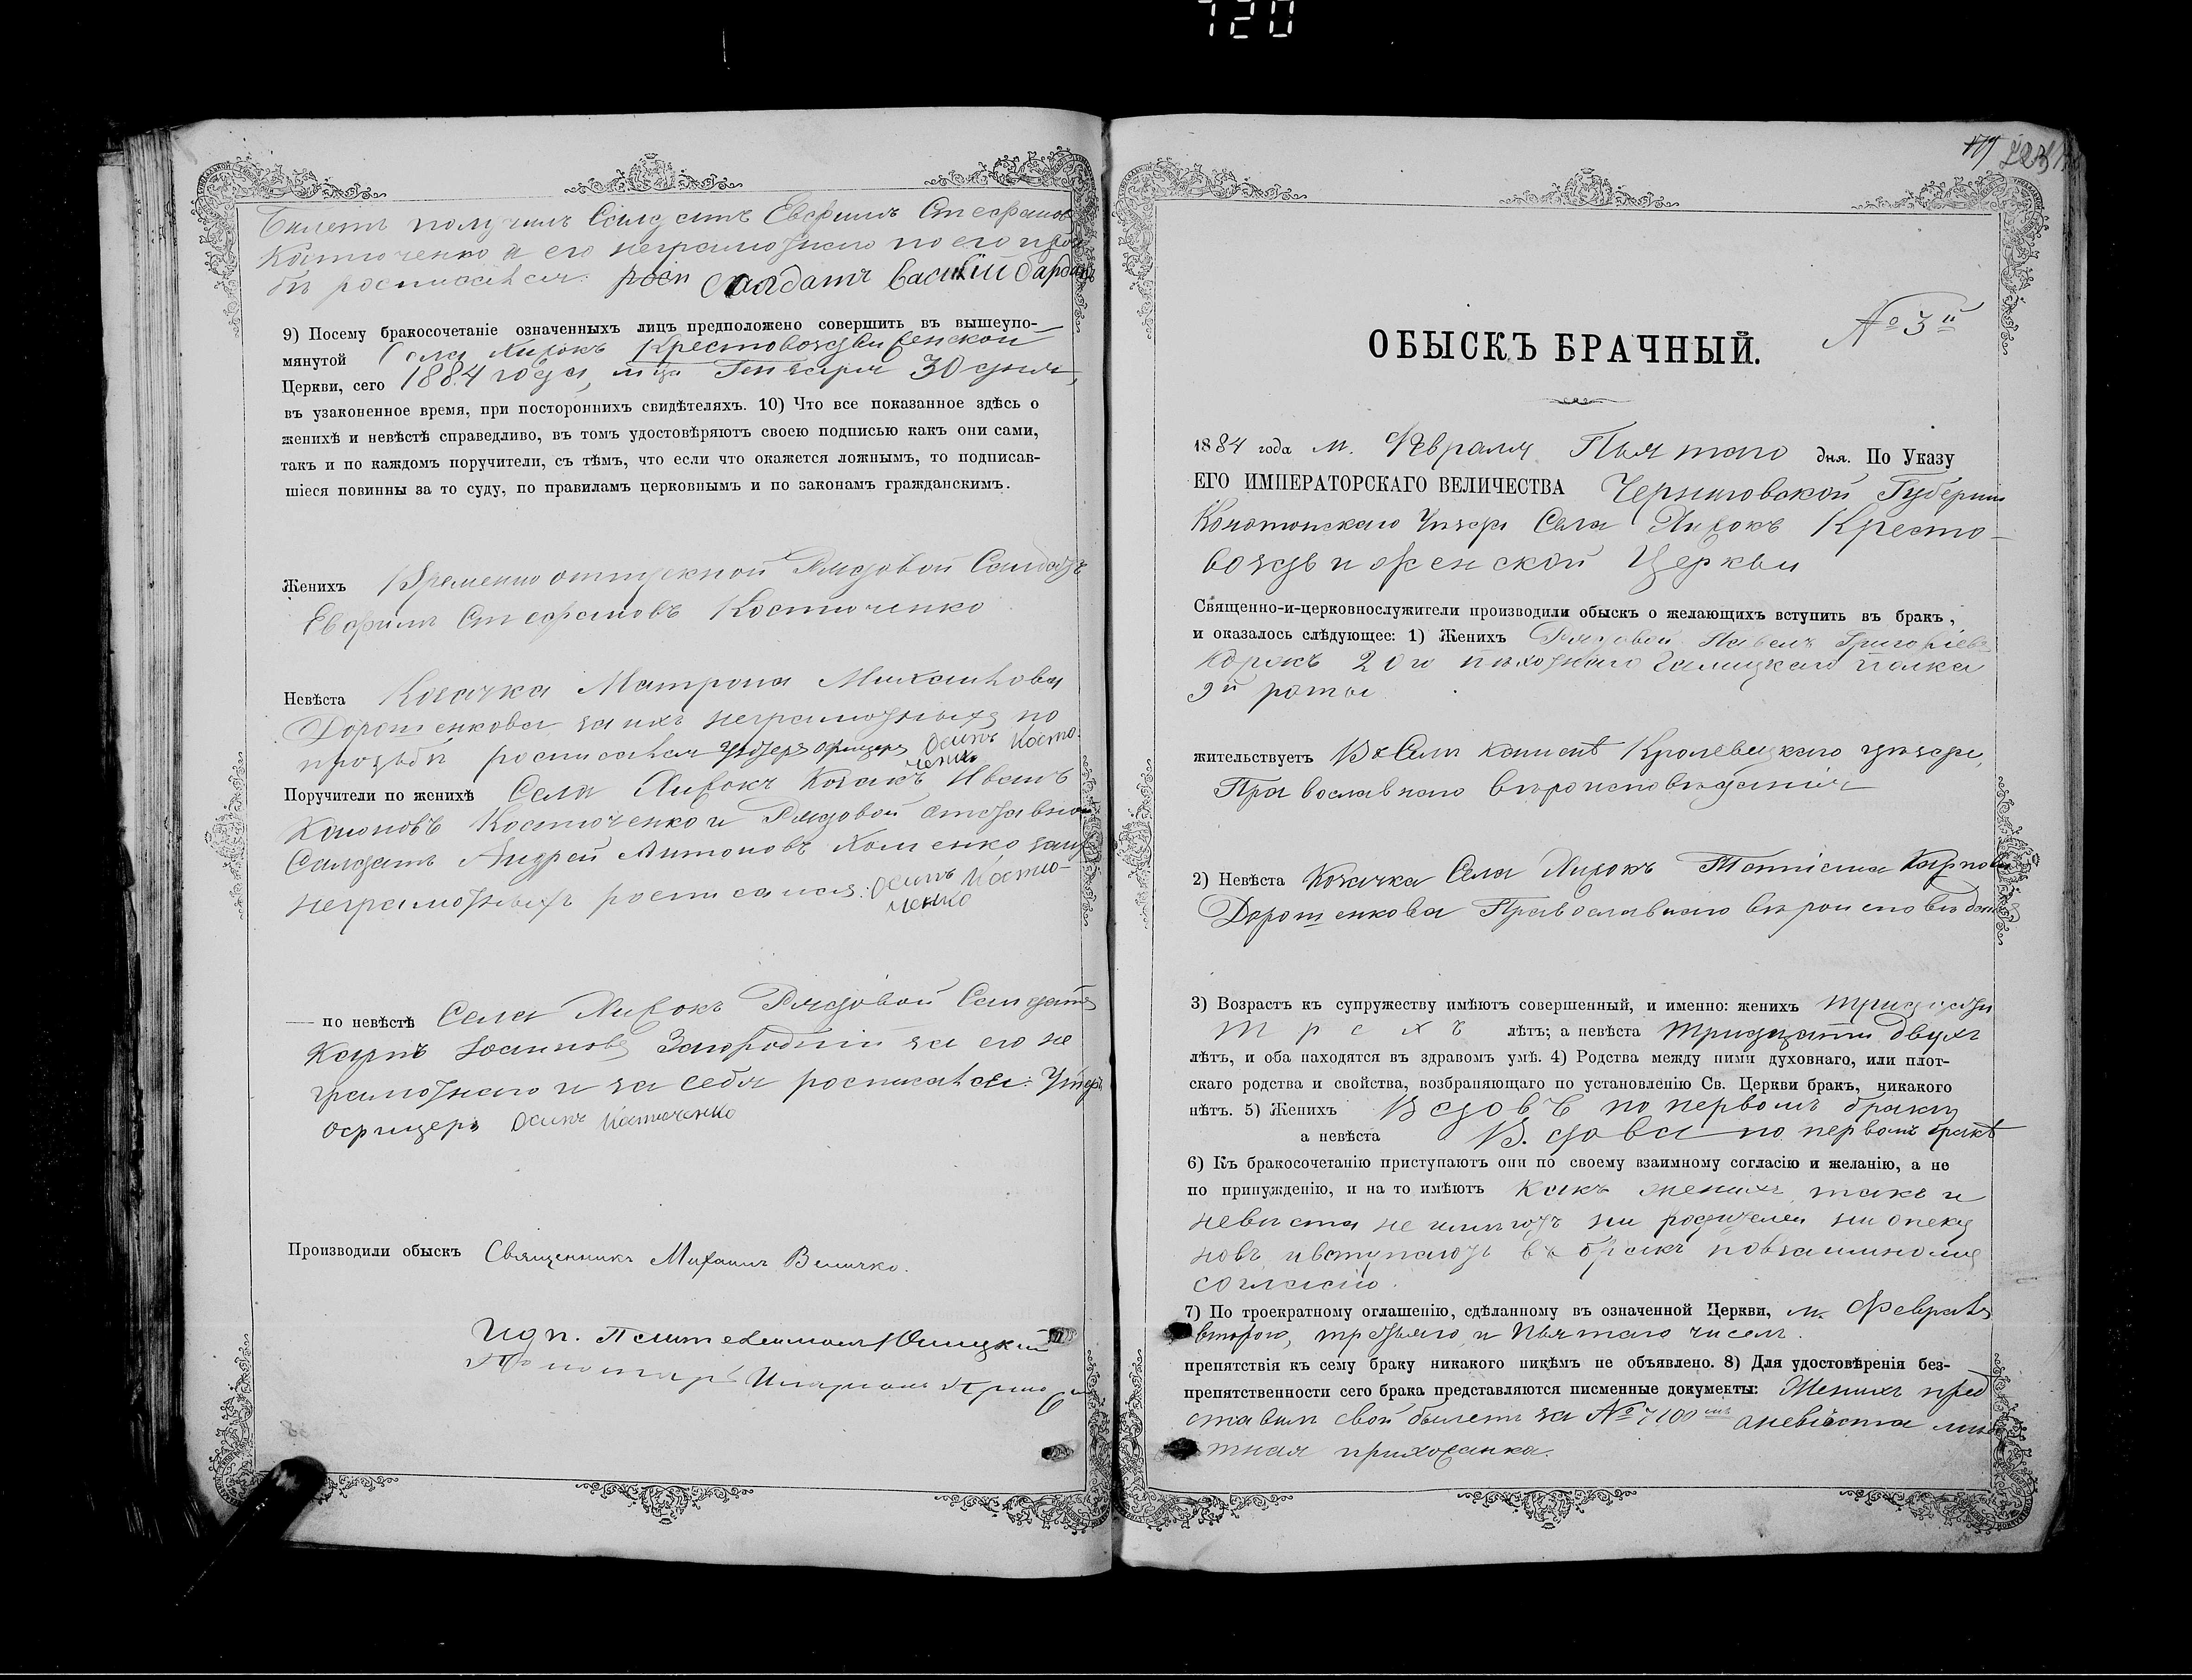 720
Билетъ получилъ Солдатъ Евфимъ Стефановъ
Костюченко а его неграмотнаго по его прось
бѣ росписался: росп Солдатъ Василій
9) Посему бракосочетаніе означенныхъ лицъ предположено совершить въ вышеупо-
мянутой Села Хижокъ Крестовоздвиженской
Церкви, сего 1884 года, м-ца Генваря 30 дня,
въ узаконенное время, при постороннихъ свидѣтеляхъ. 10) Что все показанное здѣсь о
женихѣ и невѣстѣ справедливо, въ томъ удостовѣряютъ своею подписью какъ они сами,
такъ и по каждомъ поручители, съ тѣмъ, что если что окажется ложнымъ, то подписав-
шіеся повинны за то суду, по правиламъ церковнымъ и по законамъ гражданскимъ.
Женихъ Временно отпускной Рядовой Солдатъ
Евфимъ Стефановъ Костюченко
Невѣста Козачка Матрона Михайлова
Дорошенкова за ихъ неграмотныхъ по
прозьбѣ росписался Унтеръ офицеръ Осипъ Костю-
ченко
Поручители по женихѣ Села Хижокъ Козакъ Иванъ
Костюченко и Рядовой отставной
Солдатъ Андрей Антоновъ за ихъ
неграмотныхъ росписался: Осипъ Костю-
ченко
— по невѣстѣ Села Хижокъ Рядовой Солдатъ
Карпъ Іоанновъ Загородній за его не
грамотнаго и за себя росписался: Унтеръ
Офицеръ Осипъ Костюченко
Производили обыскъ Священникъ Михаилъ Величко.
Пономарь
ОБЫСКЪ БРАЧНЫЙ.
№ 3й
1884 года м. Февраля Пятаго дня. По Указу
ЕГО ИМПЕРАТОРСКАГО ВЕЛИЧЕСТВА Черниговской Губерніи
Конотопскаго Уѣзда Села Хижокъ Кресто-
воздвиженской Церкви
Священно-и-церковнослужители производили обыскъ о желающихъ вступить въ бракъ,
и оказалось слѣдующее: 1) Женихъ Рядовой Павелъ Григоріевъ
20го пѣхотнаго Галицкаго полка
9й роты
жительствуетъ Въ Селѣ Кролевецкаго уѣзда,
Православнаго вѣроисповѣданія
2) Невѣста Козачка Села Хижокъ Татіана Карпова
Дорошенкова Православнаго вѣроисповѣданія
3) Возрастъ къ супружеству имѣютъ совершенный, и именно: женихъ тридцати
трехъ лѣтъ; а невѣста тридцати двухъ
лѣтъ, и оба находятся въ здравомъ умѣ. 4) Родства между ними духовнаго, или плот-
скаго родства и свойства, возбраняющаго по установленію Св. Церкви бракъ, никакого
нѣтъ. 5) Женихъ Вдовъ по первомъ браку
а невѣста Вдова по первомъ бракѣ
6) Къ бракосочетанію приступаютъ они по своему взаимному согласію и желанію, а не
по принужденію, и на то имѣютъ какъ женихъ такъ и
невѣста не имѣютъ ни родителей ни опеку
новъ и вступаютъ въ бракъ по взаимному
согласію.
7) По троекратному оглашенію, сдѣланному въ означенной Церкви, м. Февраля
второго, третьяго и Пятаго чиселъ.
препятствія къ сему браку никакого никѣмъ не объявлено. 8) Для удостовѣренія без-
препятственности сего брака представляются писменные документы: Женихъ пред
ставилъ свой билетъ за № 7100 а невѣста мѣс
тная прихожанка.